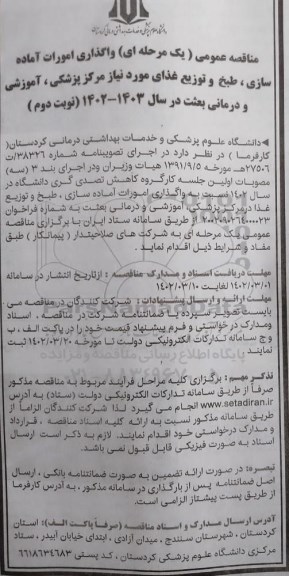 مناقصه عمومی ( یک مرحله ای) واگذاری امورات آماده
سازی ، طبخ و توزیع غذای مورد نیاز مرکز پزشکی ، آموزشی
و درمانی بعثت در سال ۱۴۰۳-۱۴۰۲ (نوبت دوم )
دانشگاه علوم پزشکی و خدمات بهداشتی درمانی کردستان(
کارفرما ) در نظر دارد در اجرای تصویبنامه شماره ۳۸۳۲۶/ت
۲۷۵۰۶هـ مورخه ۱۳۹۱/۹/۵ هیات وزیران ودر اجرای بند ۳ (سه)
مصوبات اولین جلسه کارگروه کاهش تصدی گری دانشگاه در
سال نسبت به واگذاری امورات آماده سازی ، طبخ و توزیع
غذا درمرکز پزشکی، آموزشی و درمانی بعثت به شماره فراخوان
از طریق سامانه ستاد ایران با برگزاری مناقصه
عمومی یک مرحله ای به شرکت های صلاحیتدار ( پیمانکار ) طبق
مفاد و شرایط ذیل اقدام نماید .
مهلت دریافت اسناد و مدارک مناقصه : ازتاریخ انتشار در سامانه
۱۴۰۲/۰۳/۰۱ لغایت ۱۴۰۲/۰۳/۱۰
مهلت ارائه و ارسال پیشنهادات : شرکت کنندگان در مناقصه می
بایست تصویر سپرده یا ضمانتنامه شرکت در مناقصه ، اسناد
ومدارک درخواستی و فرم پیشنهاد قیمت خود را در پاکت الف ، ب
و ج سامانه تدارکات الکترونیکی دولت تا مورخه ۱۴۰۲/۰۳/۲۰ ثبت
نمایند
تذکر مهم : برگزاری کلیه مراحل فرآیند مربوط به مناقصه مذکور
صرفاً از طریق سامانه تدارکات الکترونیکی دولت (ستاد) به آدرس
www.setadiran.ir انجام می گیرد لذا شرکت کنندگان الزاماً از
طریق سامانه مذکور نسبت به ارائه کلیه اسناد مناقصه ، قرارداد
و مدارک درخواستی خود اقدام نمایند. لازم به ذکر است ارسال
اسناد به صورت فیزیکی قابل قبول نمی باشد.
تبصره: در صورت ارائه تضمین به صورت ضمانتنامه بانکی ، ارسال
اصل ضمانتنامه پس از بارگذاری در سامانه مذکور ، به آدرس کارفرما
از طریق پست پیشتاز الزامی است.
آدرس ارسال مدارک و اسناد مناقصه (صرفاً پاکت الف): استان
کردستان ، شهرستان سنندج ، میدان آزادی ، ابتدای خیابان آبیدر ، ستاد
مرکزی دانشگاه علوم پزشکی کردستان ، کد پستی ۶۶۱۸۶۳۴۶۸۳